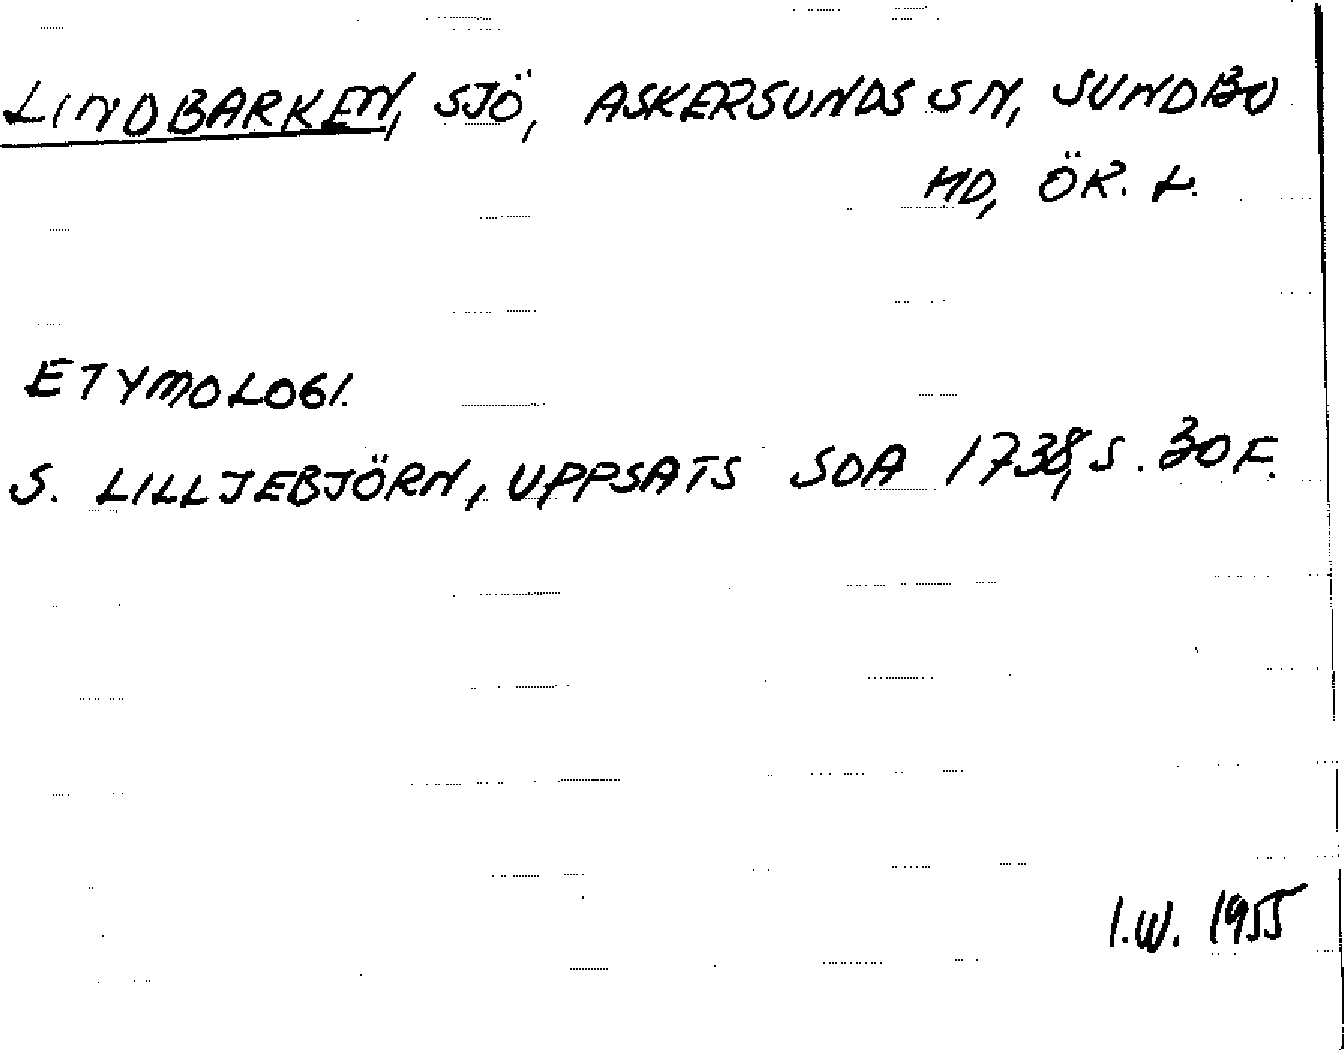 LINDBARKEN, SJÖ, ASKERSUNDS SN, SUNDBO
HD, ÖR. L.
ETYMOLOGI.
S. LILLJEBJÖRN, UPPSATS SOA 1738, S. 30 F.
I.W. 1955